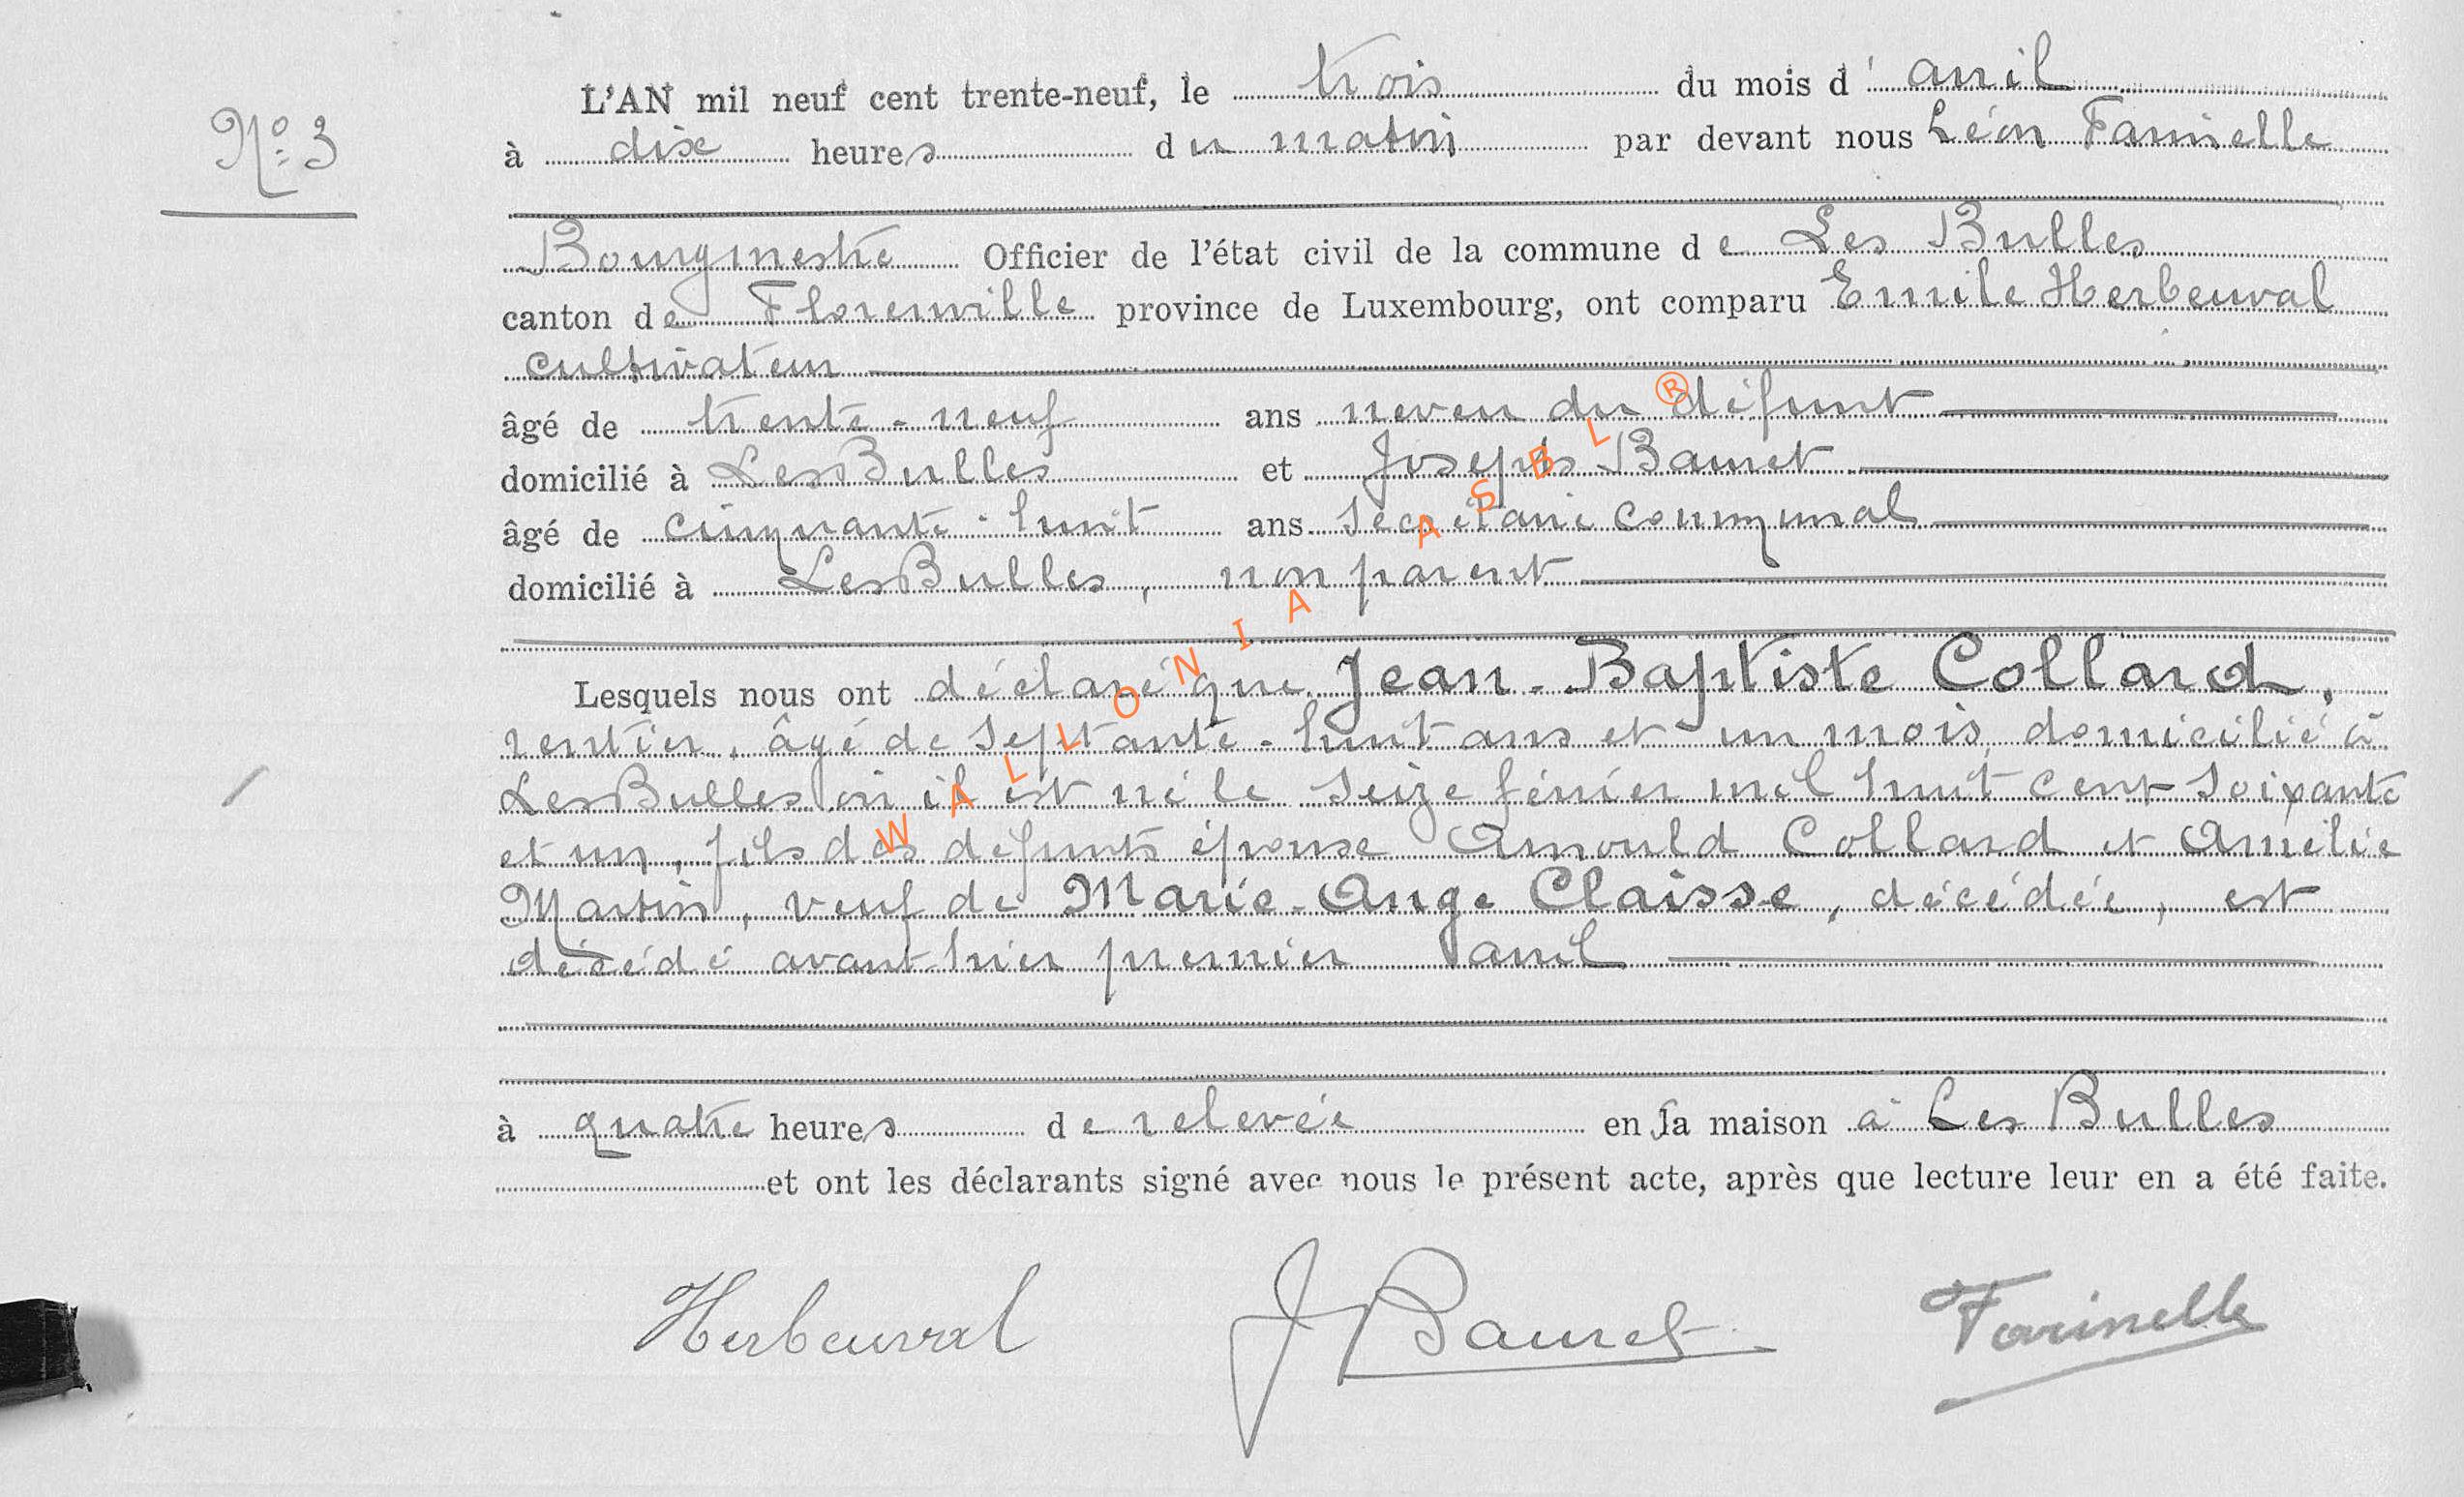 L'AN mil neuf cent trente-neuf, le trois du mois d'avril
N° 3
à dix heures du matin par devant nous Léon Farinelle
Bourgmestre Officier de l'état civil de la commune de Les Bulles
canton de Florenville province de Luxembourg, ont comparu Emile Herbeuval
cultivateur
âgé de trente-neuf ans neveu du défunt
domicilié à Les Bulles et Joseph Bauret
âgé de cinquante-huit ans secrétaire communal
domicilié à Les Bulles, non parent
Lesquels nous ont déclaré que Jean-Baptiste Collard,
rentier, âgé de septante-huit ans et un mois, domicilié à
Les Bulles où il est né le seize février mil huit cent soixante
et un, fils des défunts époux Arnould Collard et Amélie
Martin, veuf de Marie-Ange Claisse, décédée, est
décédé avant hier premier avril
à quatre heures de relevée en sa maison à Les Bulles
et ont les déclarants signé avec nous le présent acte, après que lecture leur en a été faite.
Herbeuval J Bauret Farinelle
WALLONIA ASBL ®